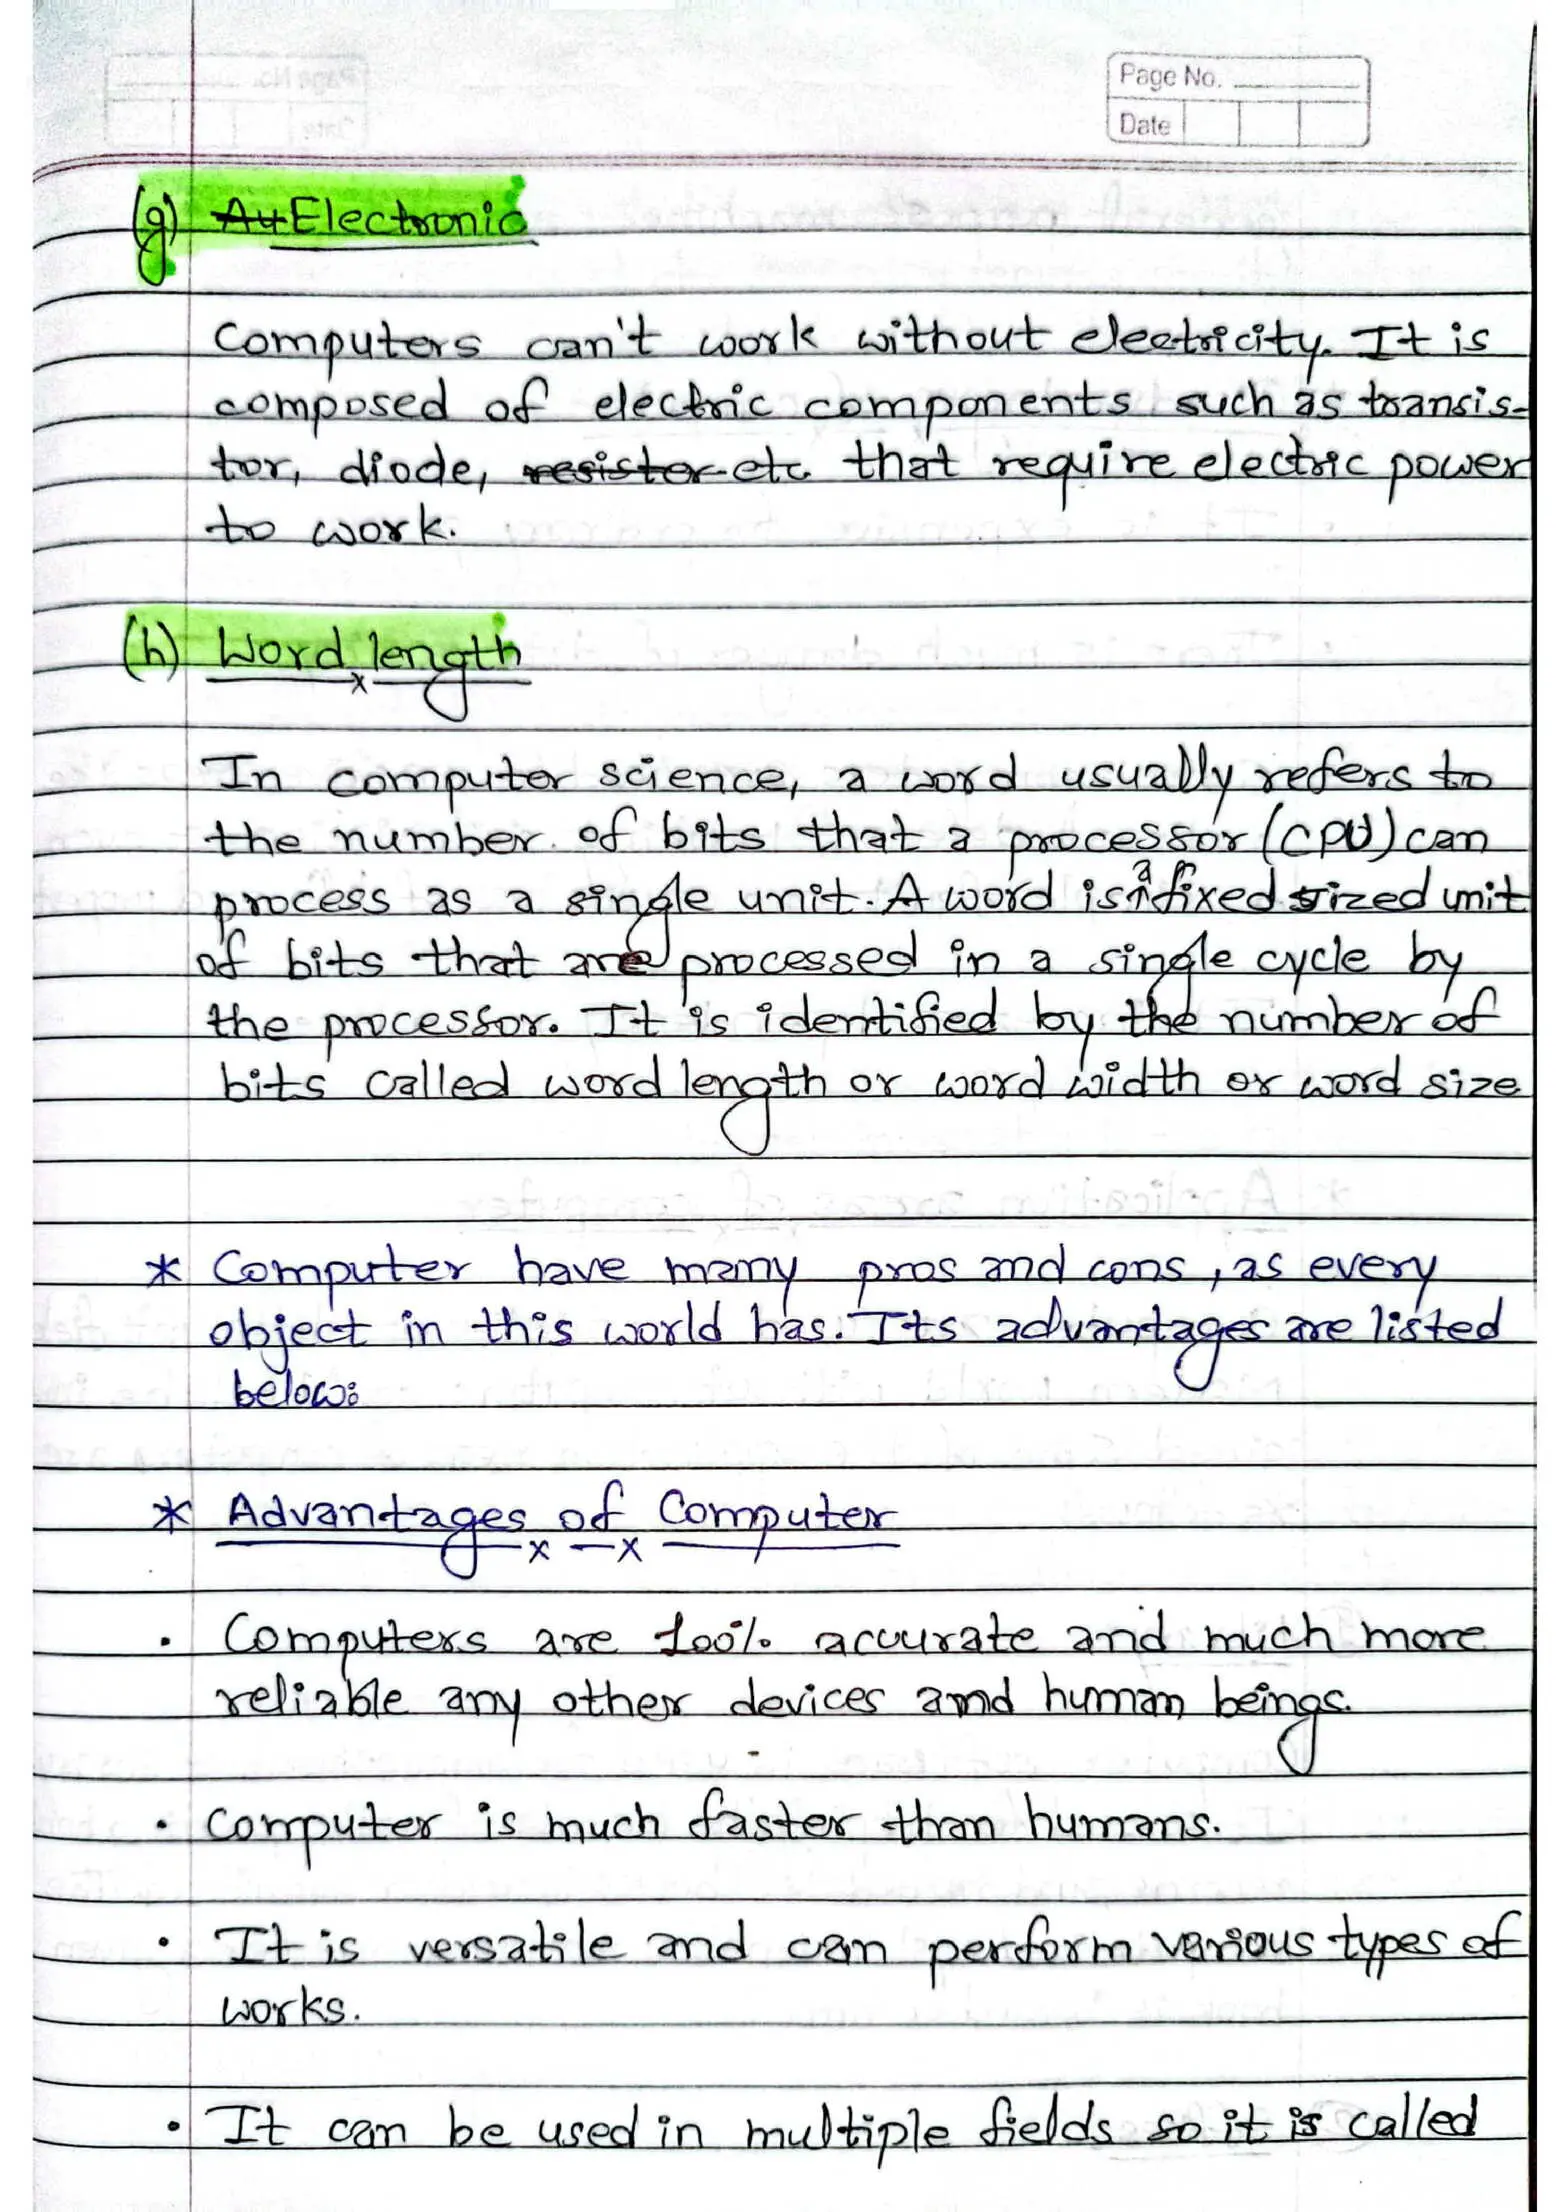 Page No.
Date
(g) Au Electronic
Computers can't work without electricity. It is
composed of electric components such as transis-
tor, diode, resister etc that require electric power
to work.
(h) Word length
In computer science, a word usually refers to
the number of bits that a processor (CPU) can
process as a single unit. A word is a fixed sized unit
of bits that are processed in a single cycle by
the processor. It is identified by the number of
bits called word length or word width or word size
* Computer have many pros and cons, as every
object in this world has. Its advantages are listed
below:
* Advantages of Computer
• Computers are 100% accurate and much more
reliable any other devices and human beings.
• Computer is much faster than humans.
• It is versatile and can perform various types of
works.
• It can be used in multiple fields so it is called